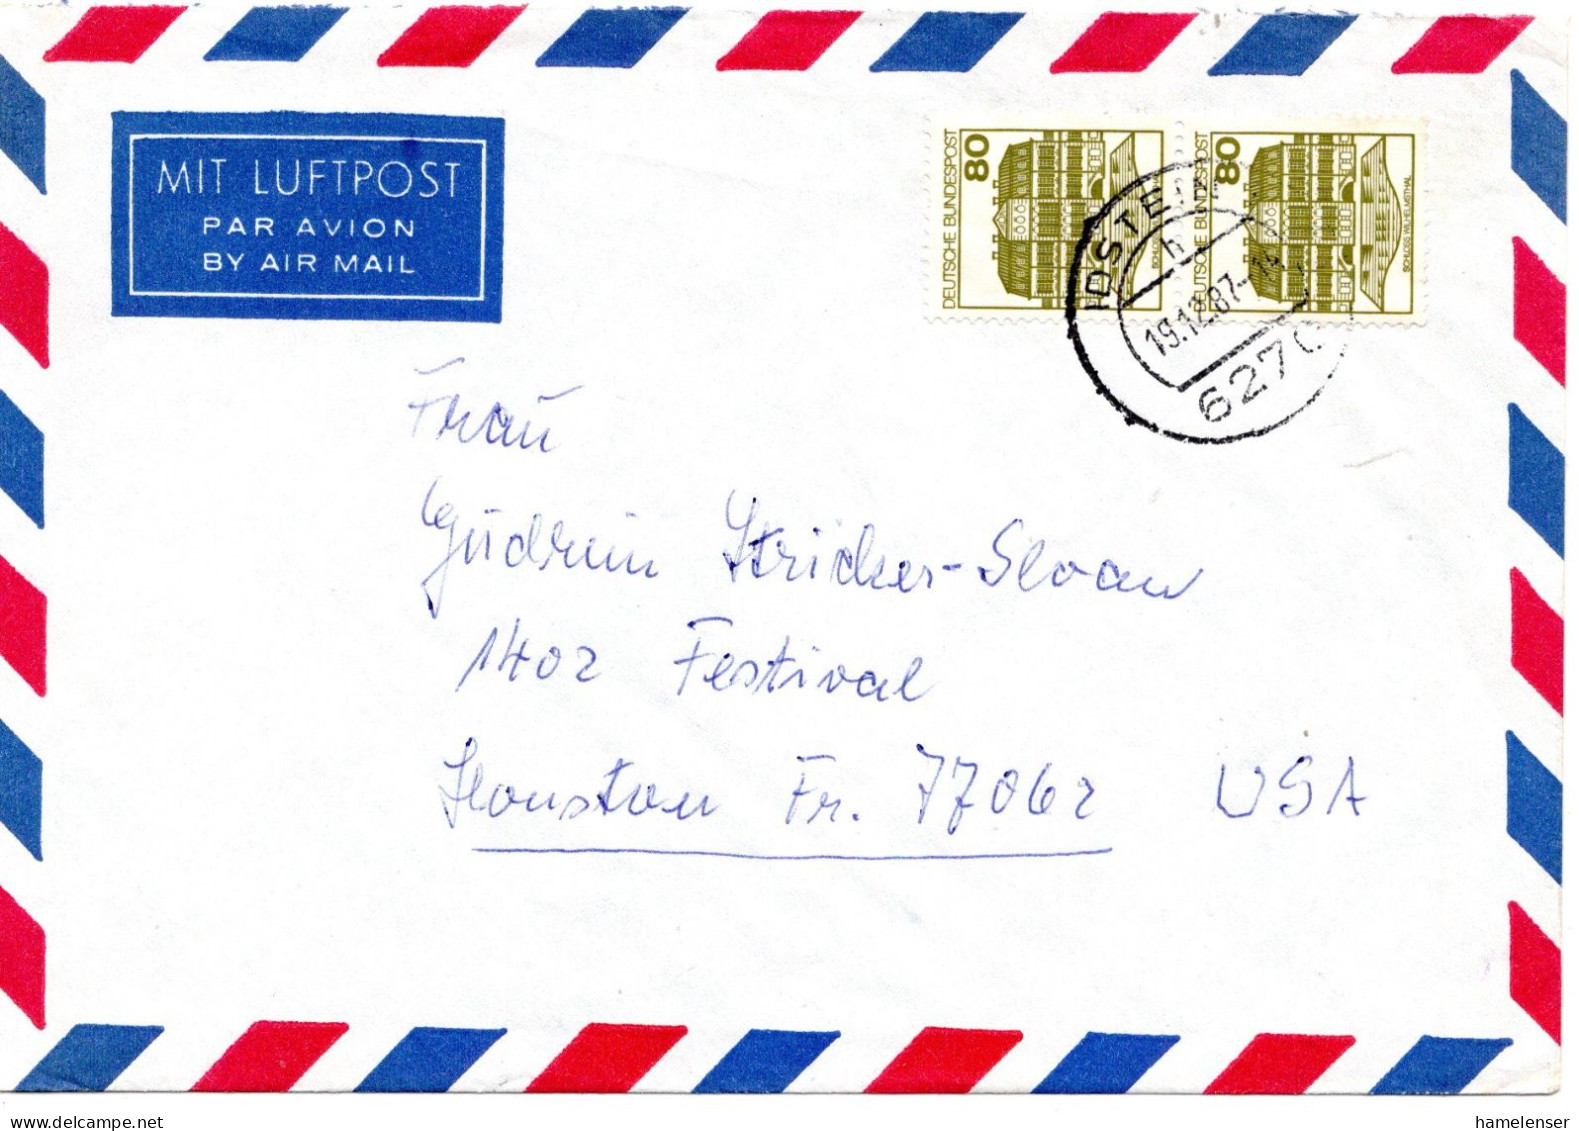 MIT LUFTPOST
PAR AVION
BY AIR MAIL
DEUTSCHE BUNDESPOST 80
DEUTSCHE BUNDESPOST 80
SCHLOSS WILHELMSTHAL
IDSTEIN
h
19.12.87
627
Frau
Gudrun Stricker-Sloan
1402 Festival
Houston Fr. 77062 USA
hamelenser